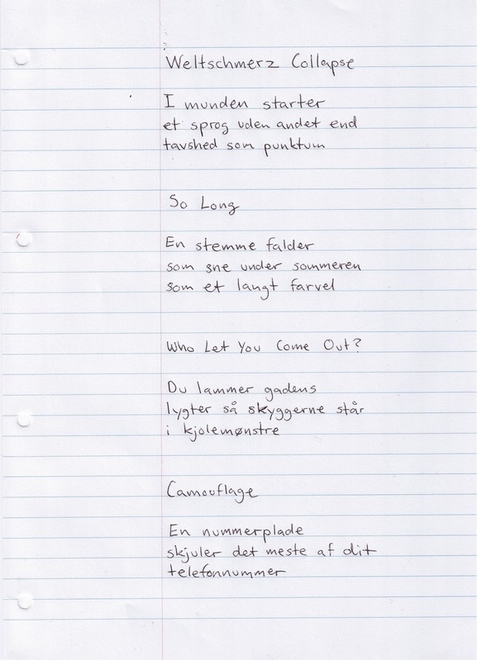 Weltschmerz Collapse
I munden starter
et sprog uden andet end
tavshed som punktum
So Long
En stemme falder
som sne under sommeren
som et langt farvel
Who Let You Come Out?
Du lammer gadens
lygter så skyggerne står
i kjolemønstre
Camouflage
En nummerplade
skjuler det meste af dit
telefonnummer